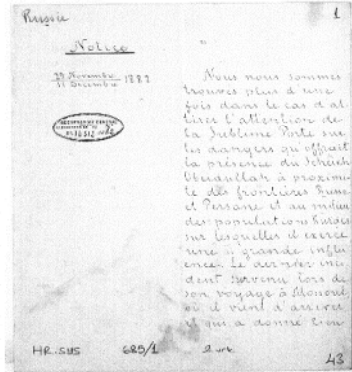 Russie
1
Notice
29 Novembre
11 Décembre 1882
Nous nous sommes
trouvés plus d'une
fois dans le cas d'at
tirer l'attention de
la Sublime Porte sur
les dangers qu'offrait
la présence du Scheïkh
Obeidullah à proximi
té des frontières Russe
et Persane et au milieu
des populations Kurdes
sur lesquelles il exerce
une si grande influ
ence. Le dernier inci
dent survenu lors de
son voyage à Mossoul
où il vient d'arriver
et qui a donné lieu
HR.SYS 685/1
43